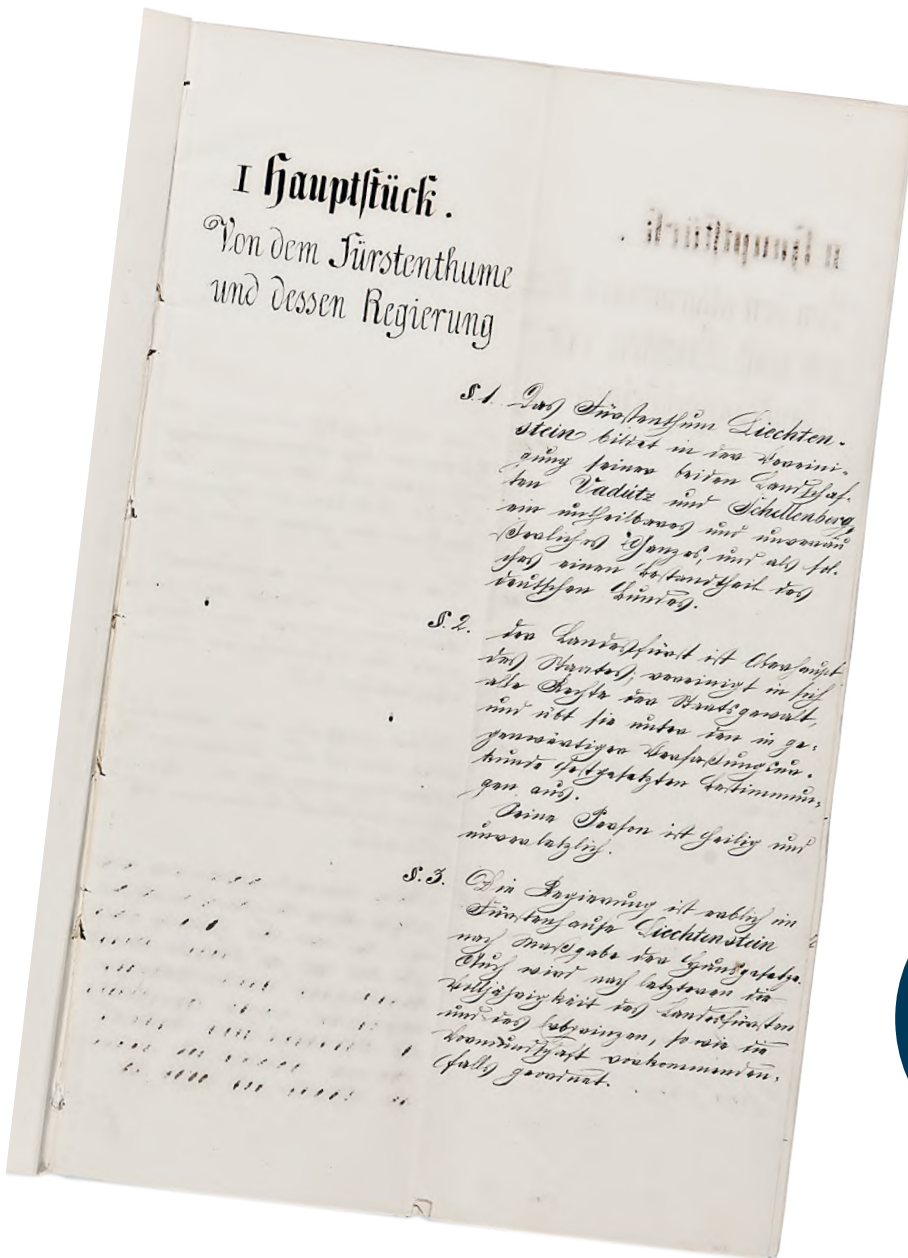 I Hauptstück.
Von dem Fürstenthume
und dessen Regierung
§. 1. Das Fürstenthum Liechten-
stein bildet in der Vereini-
gung seiner beiden Landschaf-
ten Vadutz und Schellenberg,
ein untheilbares und unveräu
ßerliches Ganzes, und als sol-
ches einen Bestandtheil des
deutschen Bundes.
§. 2. der Landesfürst ist Oberhaupt
des Staates, vereinigt in sich
alle Rechte der Staatsgewalt,
und übt sie unter den in ge-
genwärtiger Verfaßungsur-
kunde festgesetzten Bestimmun-
gen aus.
Seine Person ist heilig und
unverletzlich.
§. 3. Die Regierung ist erblich im
Fürstenhause Liechtenstein
nach Maßgabe der Hausgesetze.
Auch wird nach letzteren die
Volljährigkeit des Landesfürsten
und des Erbprinzen, sowie die
Vormundschaft vorkommenden-
falls geordnet.
II Hauptstück.